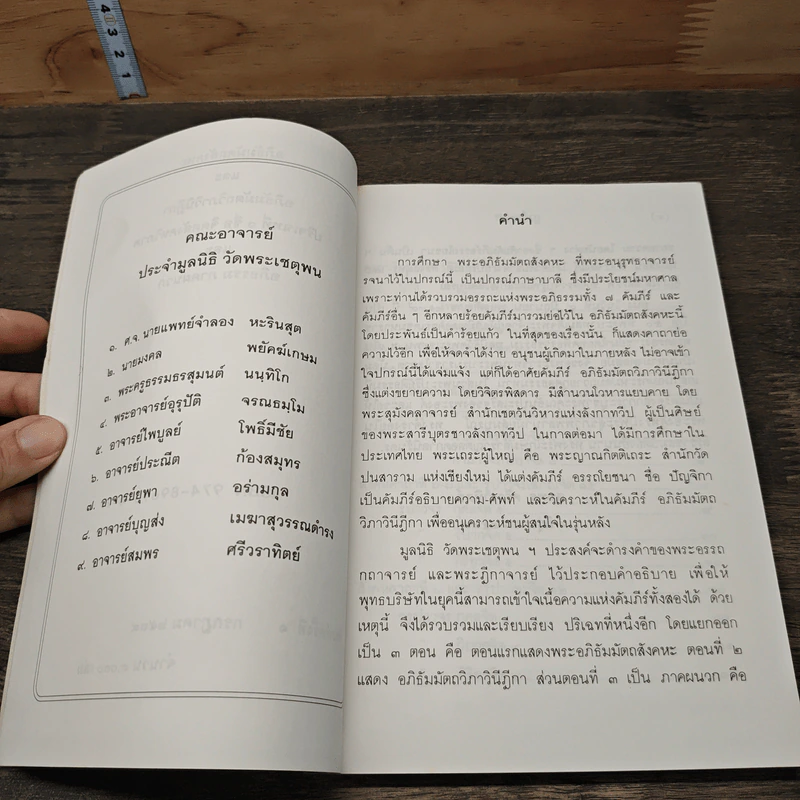 คณะอาจารย์
ประจำมูลนิธิ วัดพระเชตุพน
๑. ศ.จ. นายแพทย์จำลอง หะรินสุต
๒. นายมงคล พยัคฆ์เกษม
๓. พระครูธรรมธรสุมนต์ นนฺทิโก
๔. พระอาจารย์อุรุปัติ จรณธมฺโม
๕. อาจารย์ไพบูลย์ โพธิ์มีชัย
๖. อาจารย์ประณีต ก้องสมุทร
๗. อาจารย์ยุพา อร่ามกุล
๘. อาจารย์บุญส่ง เมฆาสุวรรณดำรง
๙. อาจารย์สมพร ศรีวราทิตย์
คำนำ
การศึกษา พระอภิธัมมัตถสังคหะ ที่พระอนุรุทธาจารย์
รจนาไว้ในปกรณ์นี้ เป็นปกรณ์ภาษาบาลี ซึ่งมีประโยชน์มหาศาล
เพราะท่านได้รวบรวมอรรถะแห่งพระอภิธรรมทั้ง ๗ คัมภีร์ และ
คัมภีร์อื่น ๆ อีกหลายร้อยคัมภีร์มารวมย่อไว้ใน อภิธัมมัตถสังคหะนี้
โดยประพันธ์เป็นคำร้อยแก้ว ในที่สุดของเรื่องนั้น ก็แสดงคาถาย่อ
ความไว้อีก เพื่อให้จดจำได้ง่าย อนุชนผู้เกิดมาในภายหลัง ไม่อาจเข้า
ใจปกรณ์นี้ได้แจ่มแจ้ง แต่ก็ได้อาศัยคัมภีร์ อภิธัมมัตถวิภาวินีฎีกา
ซึ่งแต่งขยายความ โดยวิจิตรพิสดาร มีสำนวนโวหารแยบคาย โดย
พระสุมังคลาจารย์ สำนักเชตวันวิหารแห่งลังกาทวีป ผู้เป็นศิษย์
ของพระสารีบุตรชาวลังกาทวีป ในกาลต่อมา ได้มีการศึกษาใน
ประเทศไทย พระเถระผู้ใหญ่ คือ พระญาณกิตติเถระ สำนักวัด
ปนสาราม แห่งเชียงใหม่ ได้แต่งคัมภีร์ อรรถโยชนา ชื่อ ปัญจิกา
เป็นคัมภีร์อธิบายความ-ศัพท์ และวิเคราะห์ในคัมภีร์ อภิธัมมัตถ
วิภาวินีฎีกา เพื่ออนุเคราะห์ชนผู้สนใจในรุ่นหลัง
มูลนิธิ วัดพระเชตุพน ฯ ประสงค์จะดำรงคำของพระอรรถ
กถาจารย์ และพระฎีกาจารย์ ไว้ประกอบคำอธิบาย เพื่อให้
พุทธบริษัทในยุคนี้สามารถเข้าใจเนื้อความแห่งคัมภีร์ทั้งสองได้ ด้วย
เหตุนี้ จึงได้รวบรวมและเรียบเรียง ปริเฉทที่หนึ่งอีก โดยแยกออก
เป็น ๓ ตอน คือ ตอนแรกแสดงพระอภิธัมมัตถสังคหะ ตอนที่ ๒
แสดง อภิธัมมัตถวิภาวินีฎีกา ส่วนตอนที่ ๓ เป็น ภาคผนวก คือ
4 3 2 1